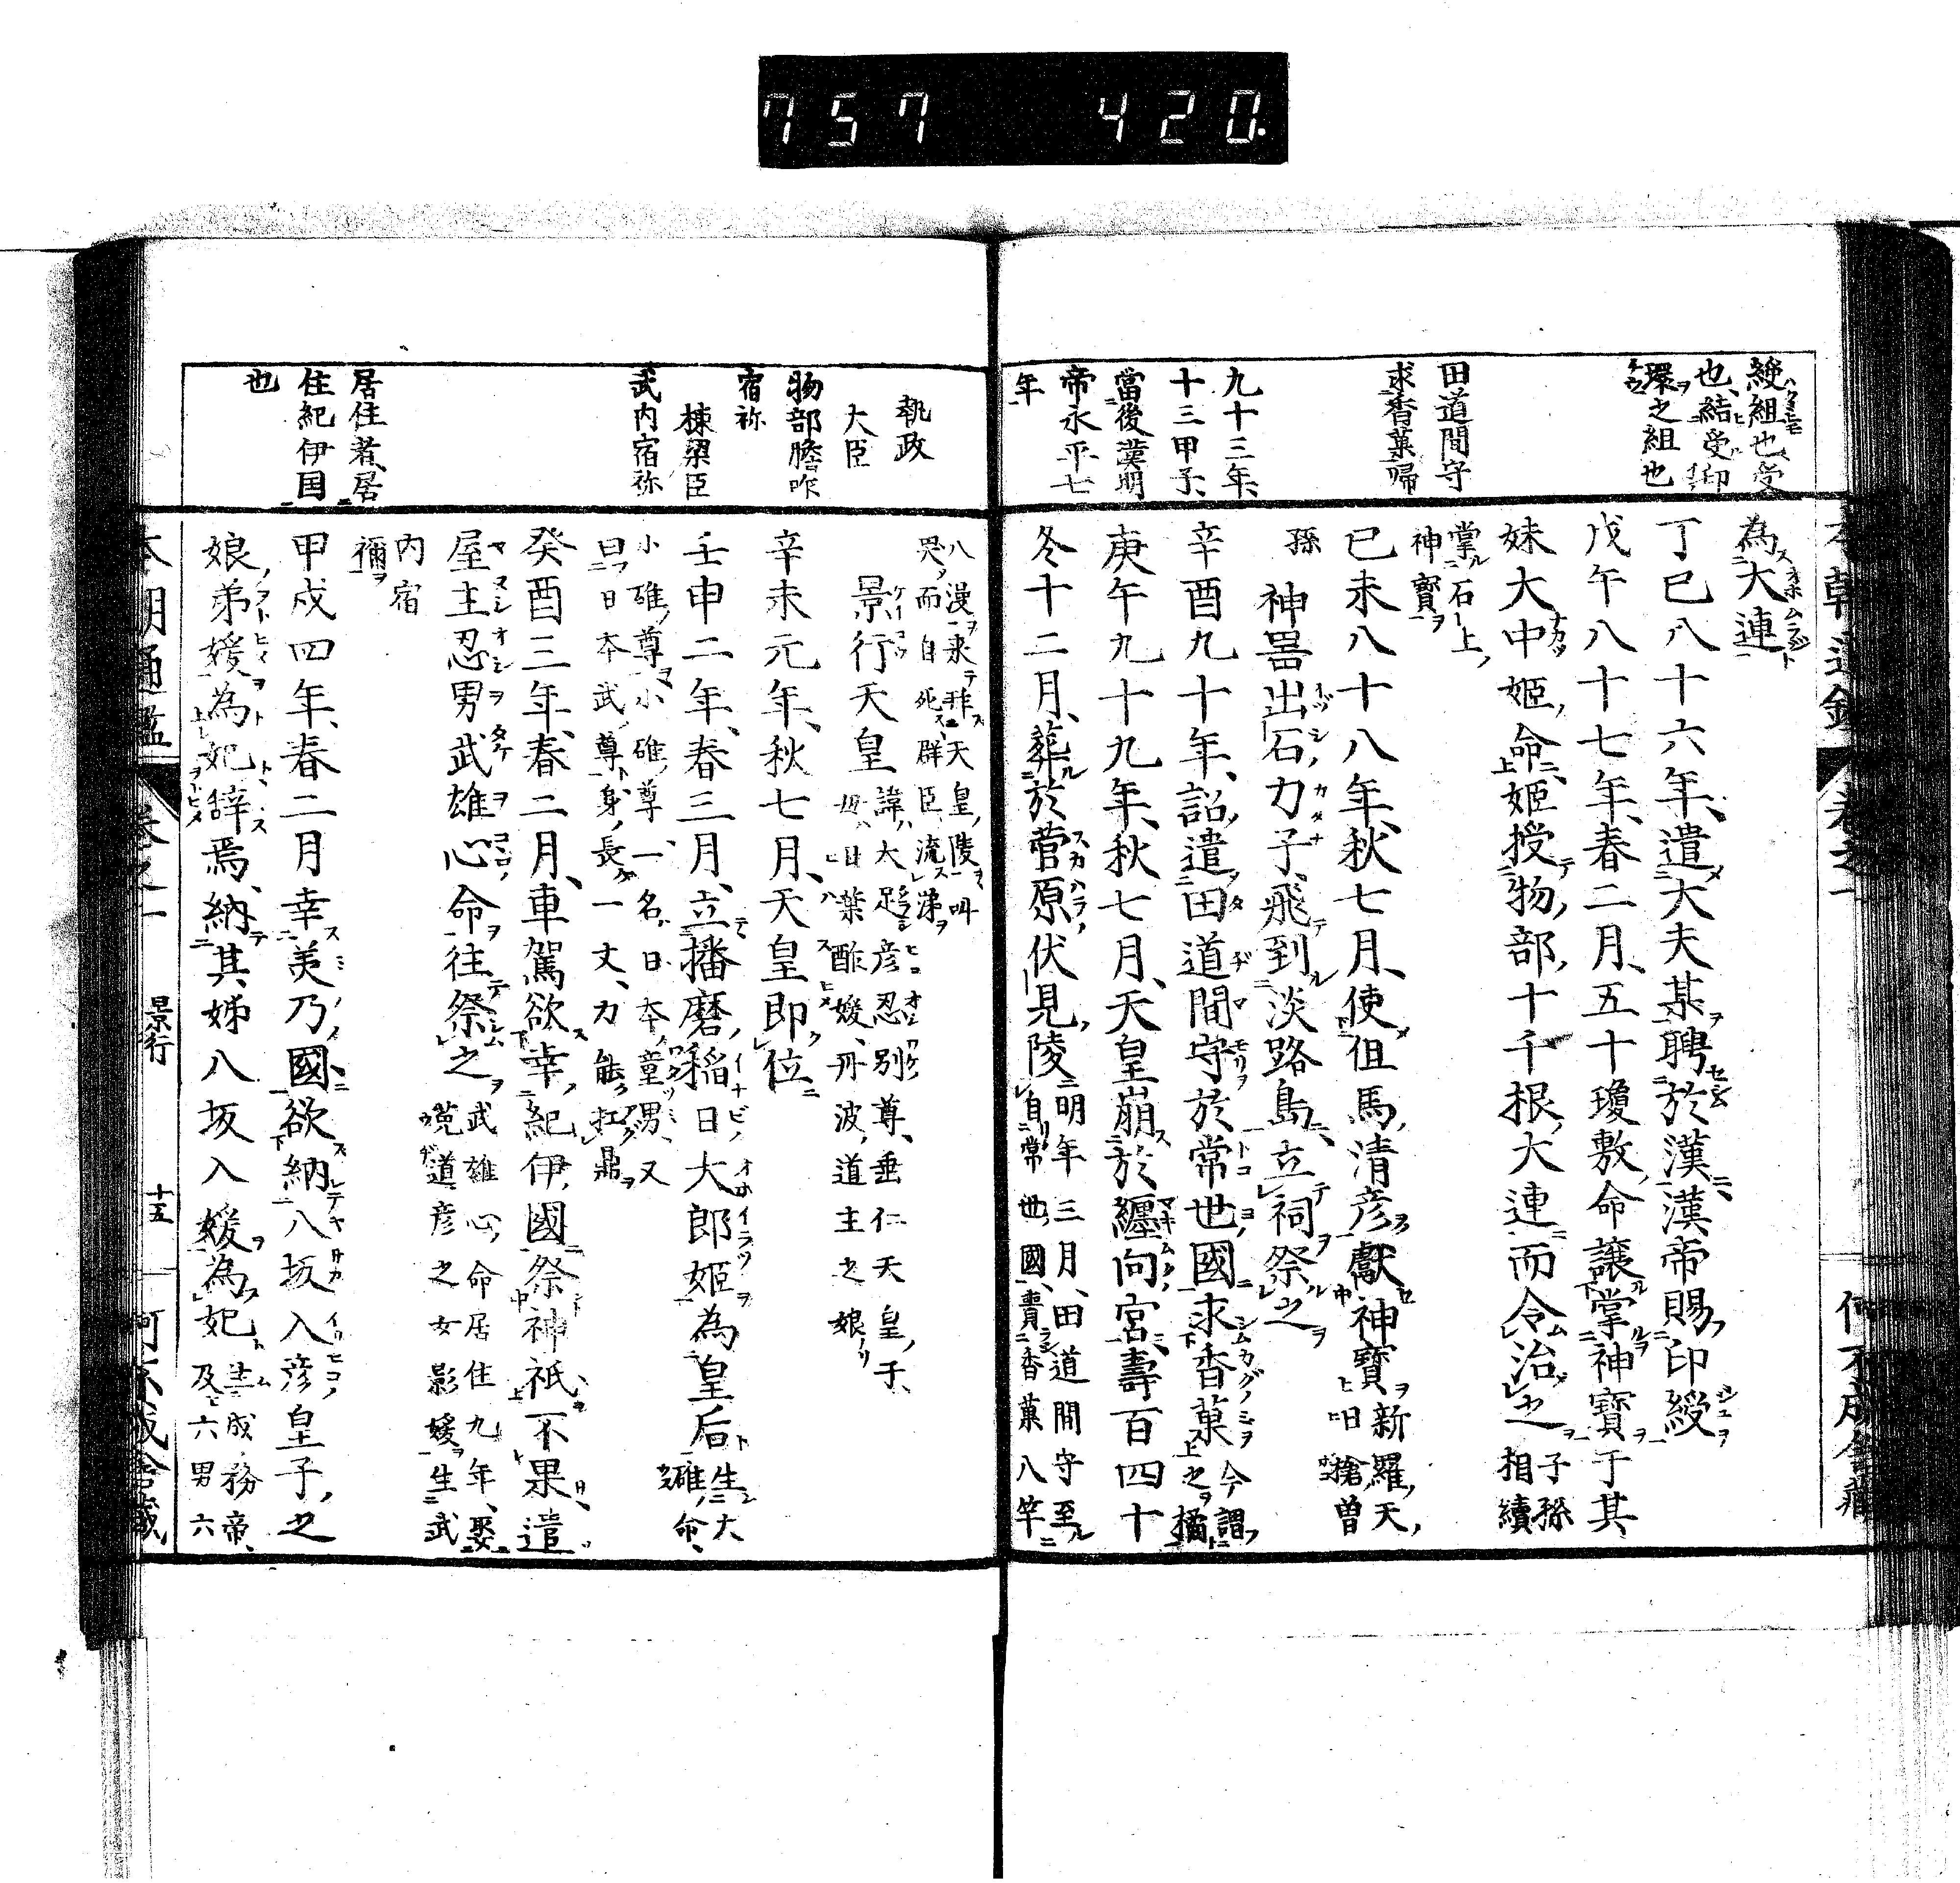 757 420.
綬組也受
也、結受印
環之組也
田道間守
求香菓歸
九十三年、
十三甲子、
當後漢明
帝永平七
年
為大連
丁巳八十六年、遣大夫某聘於漢、漢帝賜印綬
戊午八十七年、春二月、五十瓊敷、命讓掌神寶于其
妹大中姬、命姬授物部十千根大連而令治之 子孫相續
掌石上
神寶
己未八十八年、秋七月、使但馬清彥獻神寶 新羅天日槍曽
孫
神器出石刀子、飛到淡路島、立祠祭之
辛酉九十年、詔遣田道間守於常世國求香菓 今謂之橘
庚午九十九年、秋七月、天皇崩於纏向宮、壽百四十
冬十二月、葬於菅原伏見陵 明年三月、田道間守至自常世國、賷香菓八竿
八漫求拜天皇陵叫
哭而自死、群臣流涕
景行天皇 諱大足彥忍別尊、垂仁天皇子、母日葉酢媛、丹波道主之娘
辛未元年、秋七月、天皇即位
壬申二年、春三月、立播磨稲日大郎姬為皇后 生大碓命、
小碓尊、小碓尊一名日本童男、又
曰日本武尊、身長一丈、力能扛鼎
癸酉三年、春二月、車駕欲幸紀伊國祭神祇、不果、遣
屋主忍男武雄心命往祭之 武雄心命居住九年、娶菟道彥之女影媛生武
内宿
禰
甲戌四年、春二月幸美乃國、欲納八坂入彥皇子之
娘弟媛為妃、辞焉、納其姊八坂入媛為妃 生成務帝、及六男六
執政
大臣
物部膽咋
宿祢
棟梁臣
武内宿祢
居住者居
住紀伊国
也
本朝通鑑 卷之一 景行 十五